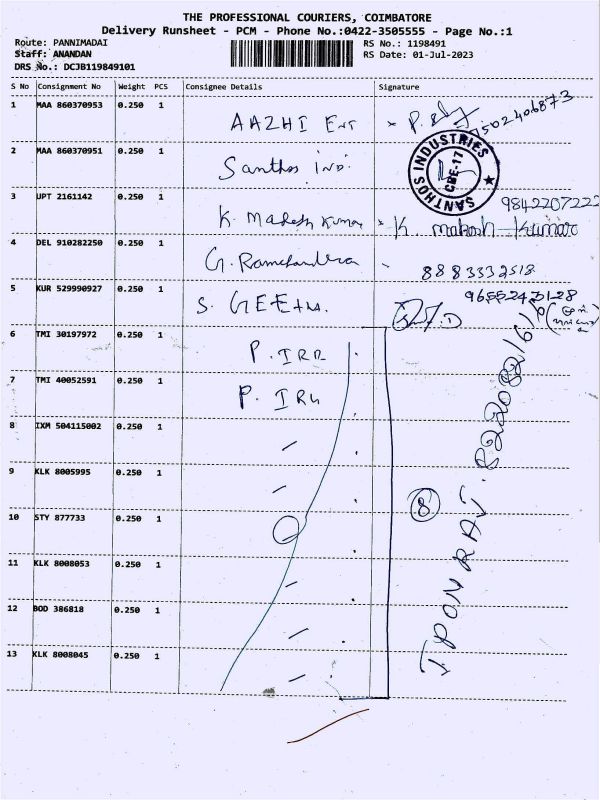 THE PROFESSIONAL COURIERS, COIMBATORE
Delivery Runsheet - PCM - Phone No.:0422-3505555 - Page No.:1
Route: PANNIMADAI RS No.: 1198491
Staff: ANANDAN RS Date: 01-Jul-2023
DRS No.: DCJB119849101
S No Consignment No Weight PCS Consignee Details Signature
1 MAA 860370953 0.250 1 AAZHI Ent
7502406873
2 MAA 860370951 0.250 1 Santhos Ind.
SANTHOS INDUSTRIES
CBE-17
3 UPT 2161142 0.250 1 K. Mahesh Kumar K. mahesh Kumar
9842207222
4 DEL 910282250 0.250 1 G. Ramchandra 8883332518
5 KUR 529990927 0.250 1 S. GEEtha. 9655243128
6 TMI 30197972 0.250 1 P. IRR
7 TMI 40052591 0.250 1 P. IRU
8 IXM 504115002 0.250 1
9 KLK 8005995 0.250 1
8
10 STY 877733 0.250 1
11 KLK 8008053 0.250 1
12 BOD 386818 0.250 1
13 KLK 8008045 0.250 1
I PONRAJ. 8220882161